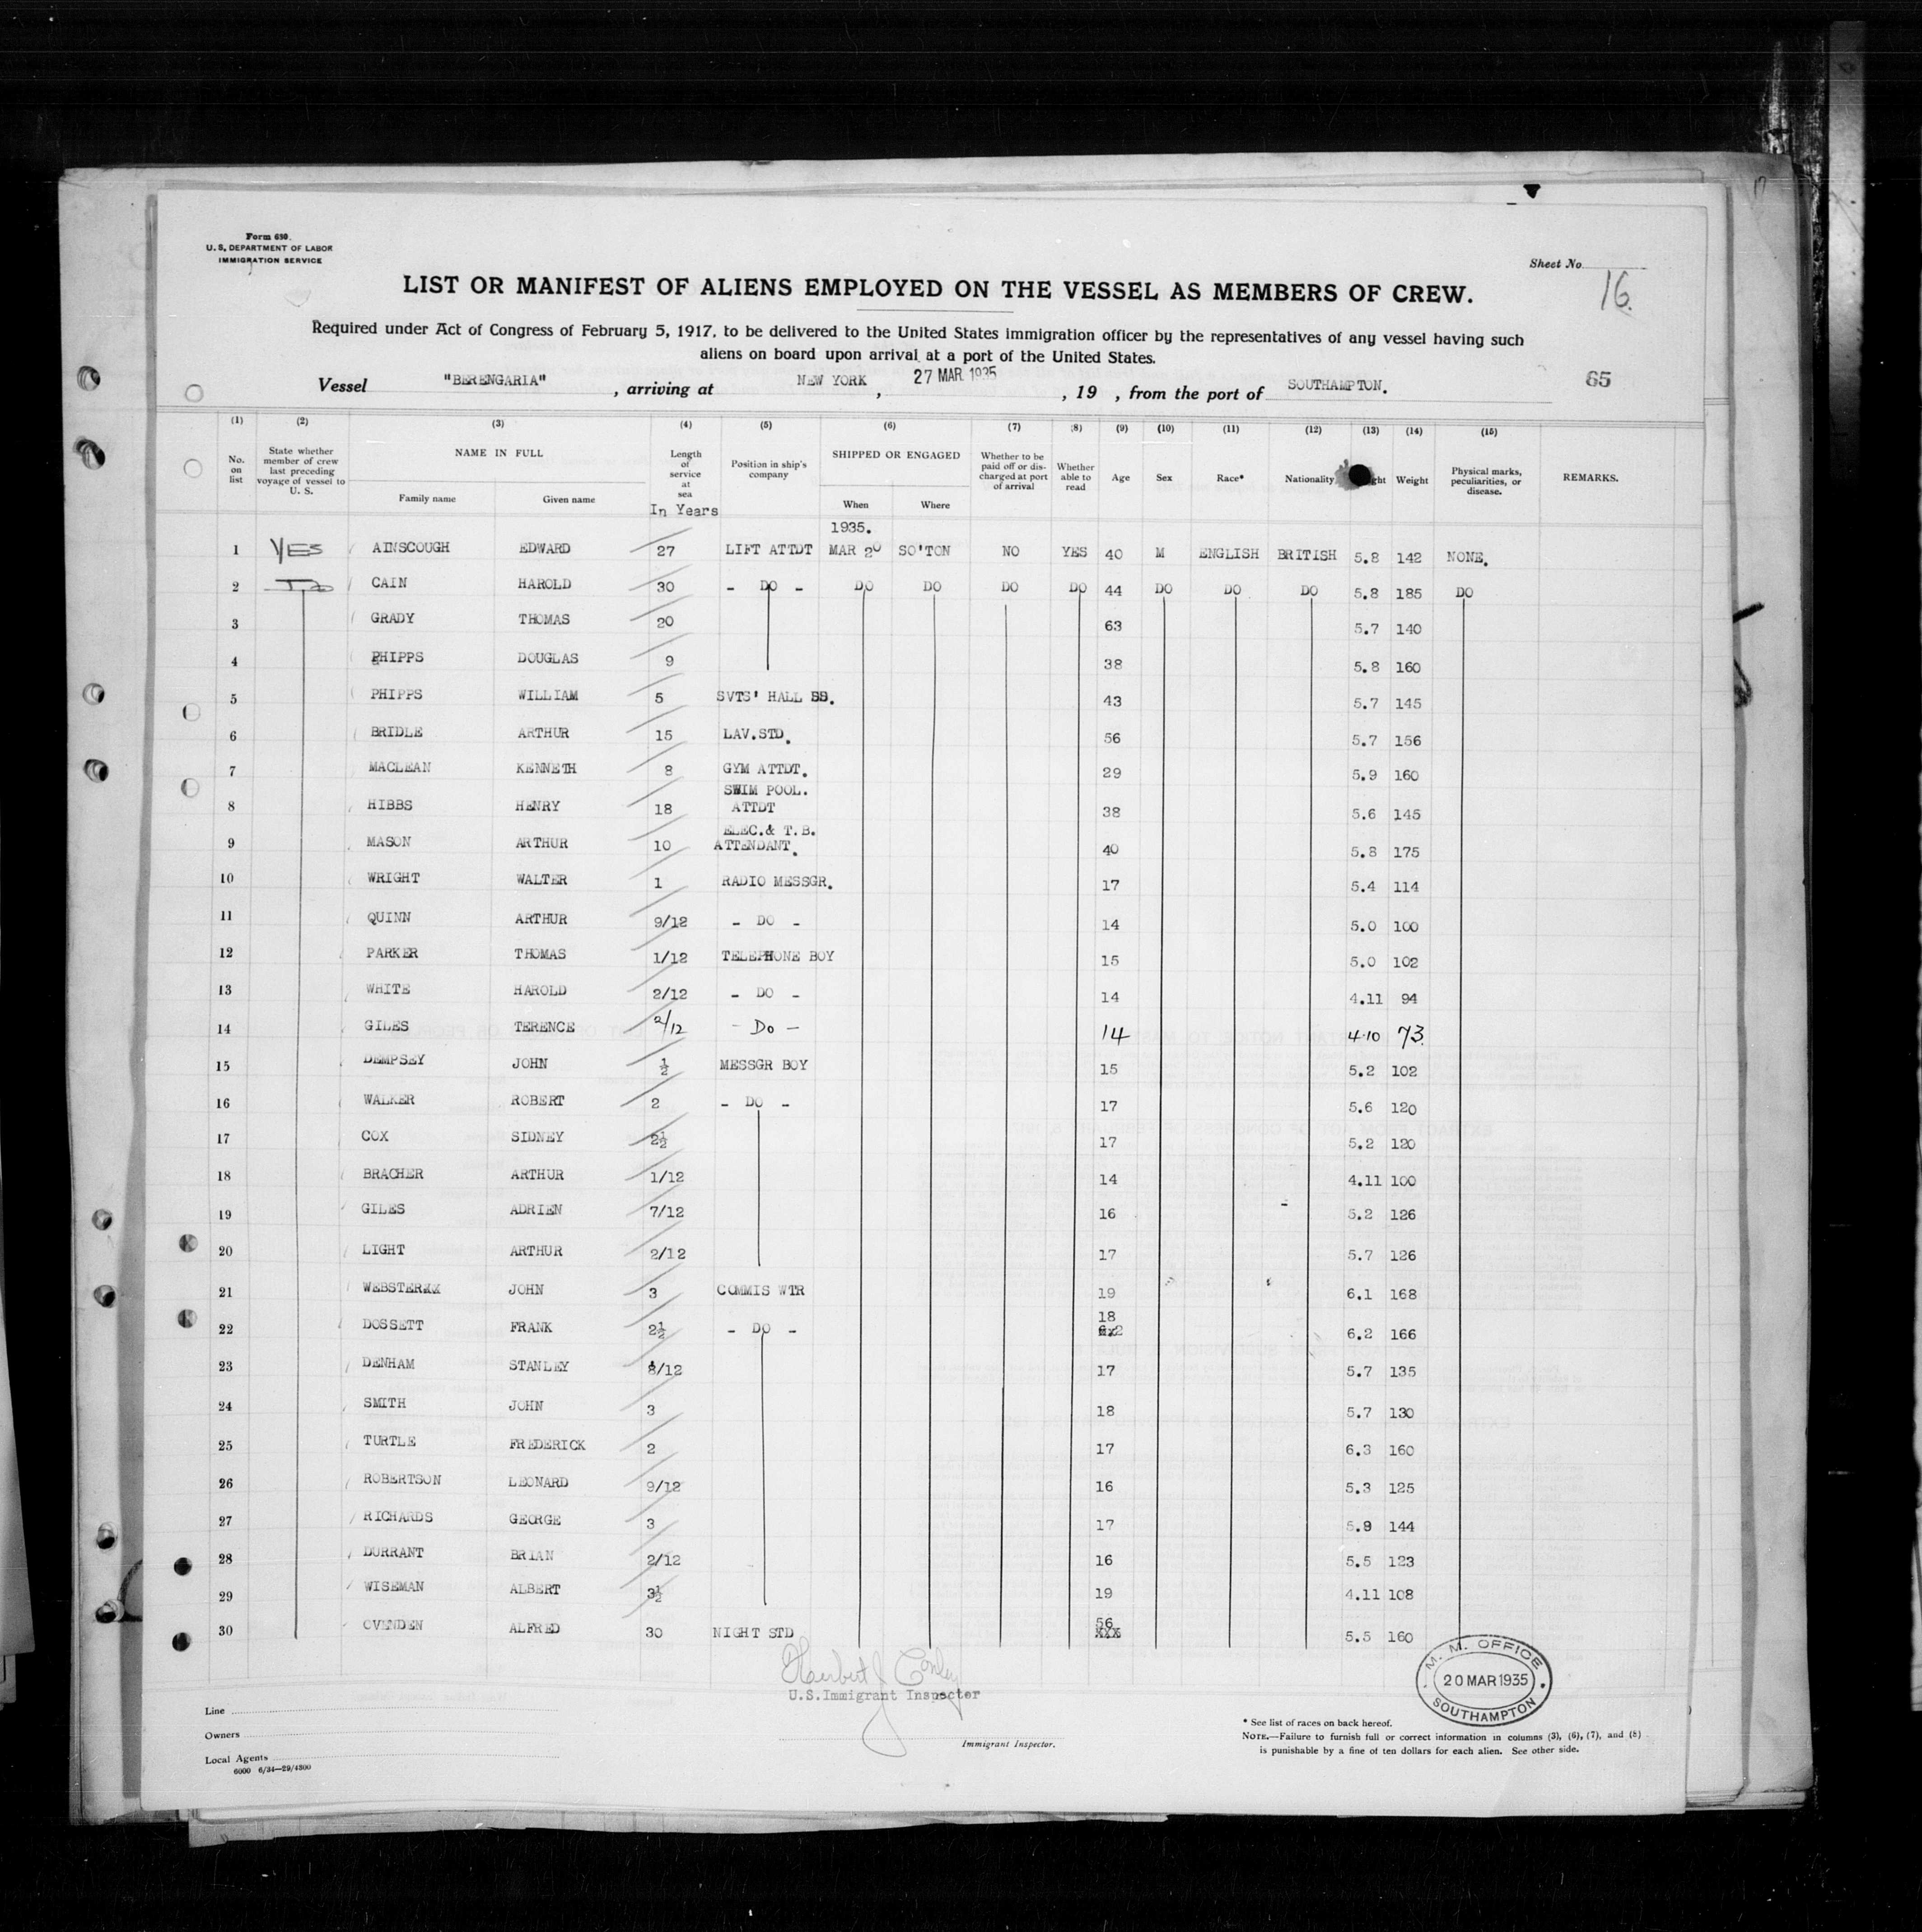 Form 680.
U. S. DEPARTMENT OF LABOR
IMMIGRATION SERVICE
Sheet No.
16.
LIST OR MANIFEST OF ALIENS EMPLOYED ON THE VESSEL AS MEMBERS OF CREW.
Required under Act of Congress of February 5, 1917, to be delivered to the United States immigration officer by the representatives of any vessel having such
aliens on board upon arrival at a port of the United States.
Vessel "BERENGARIA", arriving at NEW YORK, 27 MAR 1935, 19 , from the port of SOUTHAMPTON. 65
(1) (2) (3) (4) (5) (6) (7) (8) (9) (10) (11) (12) (13) (14) (15)
No. on list State whether member of crew last preceding voyage of vessel to U. S. NAME IN FULL Family name Given name Length of service at sea In Years Position in ship's company SHIPPED OR ENGAGED When Where Whether to be paid off or discharged at port of arrival Whether able to read Age Sex Race* Nationality ght Weight Physical marks, peculiarities, or disease. REMARKS.
1935.
1 YES AINSCOUGH EDWARD 27 LIFT ATTDT MAR 20 SO'TON NO YES 40 M ENGLISH BRITISH 5.8 142 NONE.
2 CAIN HAROLD 30 - DO - DO DO DO DO 44 DO DO DO 5.8 185 DO
3 GRADY THOMAS 20 63 5.7 140
4 PHIPPS DOUGLAS 9 38 5.8 160
5 PHIPPS WILLIAM 5 SVTS' HALL 43 5.7 145
6 BRIDLE ARTHUR 15 LAV.STD. 56 5.7 156
7 MACLEAN KENNETH 8 GYM ATTDT. 29 5.9 160
8 HIBBS HENRY 18 SWIM POOL. ATTDT 38 5.6 145
9 MASON ARTHUR 10 ELEC.& T.B. ATTENDANT. 40 5.8 175
10 WRIGHT WALTER 1 RADIO MESSGR. 17 5.4 114
11 QUINN ARTHUR 9/12 - DO - 14 5.0 100
12 PARKER THOMAS 1/12 TELEPHONE BOY 15 5.0 102
13 WHITE HAROLD 2/12 - DO - 14 4.11 94
14 GILES TERENCE 2/12 - Do - 14 4.10 73.
15 DEMPSEY JOHN ½ MESSGR BOY 15 5.2 102
16 WALKER ROBERT 2 - DO - 17 5.6 120
17 COX SIDNEY 2½ 17 5.2 120
18 BRACHER ARTHUR 1/12 14 4.11 100
19 GILES ADRIEN 7/12 16 5.2 126
20 LIGHT ARTHUR 2/12 17 5.7 126
21 WEBSTERXX JOHN 3 COMMIS WTR 19 6.1 168
22 DOSSETT FRANK 2½ - DO - 18 6.2 166
23 DENHAM STANLEY 8/12 17 5.7 135
24 SMITH JOHN 3 18 5.7 130
25 TURTLE FREDERICK 2 17 6.3 160
26 ROBERTSON LEONARD 9/12 16 5.3 125
27 RICHARDS GEORGE 3 17 5.9 144
28 DURRANT BRIAN 2/12 16 5.5 123
29 WISEMAN ALBERT 3½ 19 4.11 108
30 OVENDEN ALFRED 30 NIGHT STD 56 XXX 5.5 160
Herbert J Conley
U.S.Immigrant Inspector
Immigrant Inspector.
M. M. OFFICE
20 MAR 1935
SOUTHAMPTON
Line
Owners
Local Agents
6000 6/34—29/4300
* See list of races on back hereof.
NOTE.—Failure to furnish full or correct information in columns (3), (6), (7), and (8)
is punishable by a fine of ten dollars for each alien. See other side.